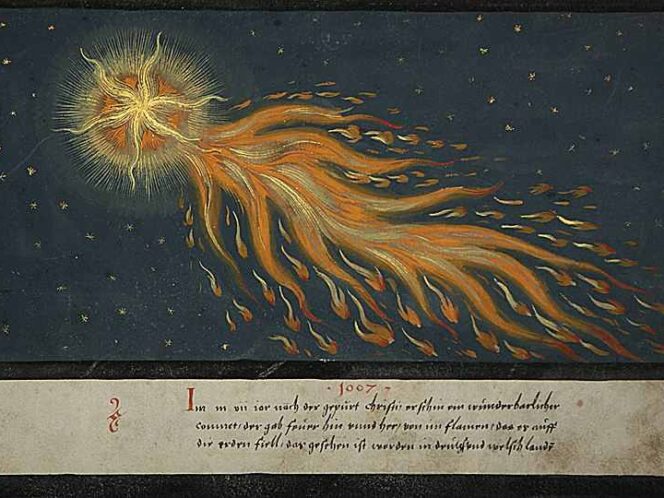 · 1007 ·
Im m vii iar nach der gepurt christi erschin ein wunderbarlicher
commet, der gab feuer hin vnnd her, von im flamen, das er auff
die erden fiell, das gesehen ist worden in deutsch vnd welsch landt